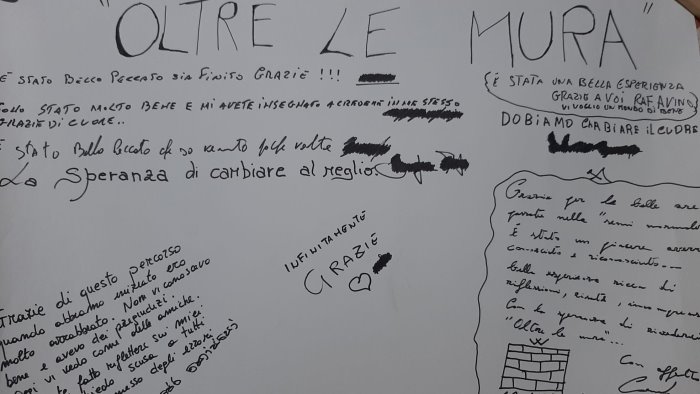 "OLTRE LE MURA"
È STATO BELLO PECCATO SIA FINITO GRAZIE !!!
SONO STATO MOLTO BENE E MI AVETE INSEGNATO A CREDERE IN ME STESSO
GRAZIE DI CUORE..
È STATO Bello Peccato che so venuto poche volte
La Speranza di cambiare al meglio.
È STATA UNA BELLA ESPERIENZA
GRAZIE A VOI RAFAVINO
VI VOGLIO UN MONDO DI BENE
DOBIAMO CAMBIARE IL CUORE
INFINITAMENTE
GRAZIE
Grazie di questo percorso
quando abbiamo iniziato ero
molto arrabbiato. Non vi conoscevo
bene e avevo dei pregiudizi.
Oggi vi vedo come delle amiche.
fatto riflettere sui miei
chiedo scusa a tutti
commesso degli errori.
Grazie per le belle ore
passate nella "semi normalità
È stato un piacere avervi
conosciuto e riconosciuto...
bella esperienza ricca di
riflessioni, risate,
Con la speranza di rivederci
"Oltre le mura"...
Con affetto